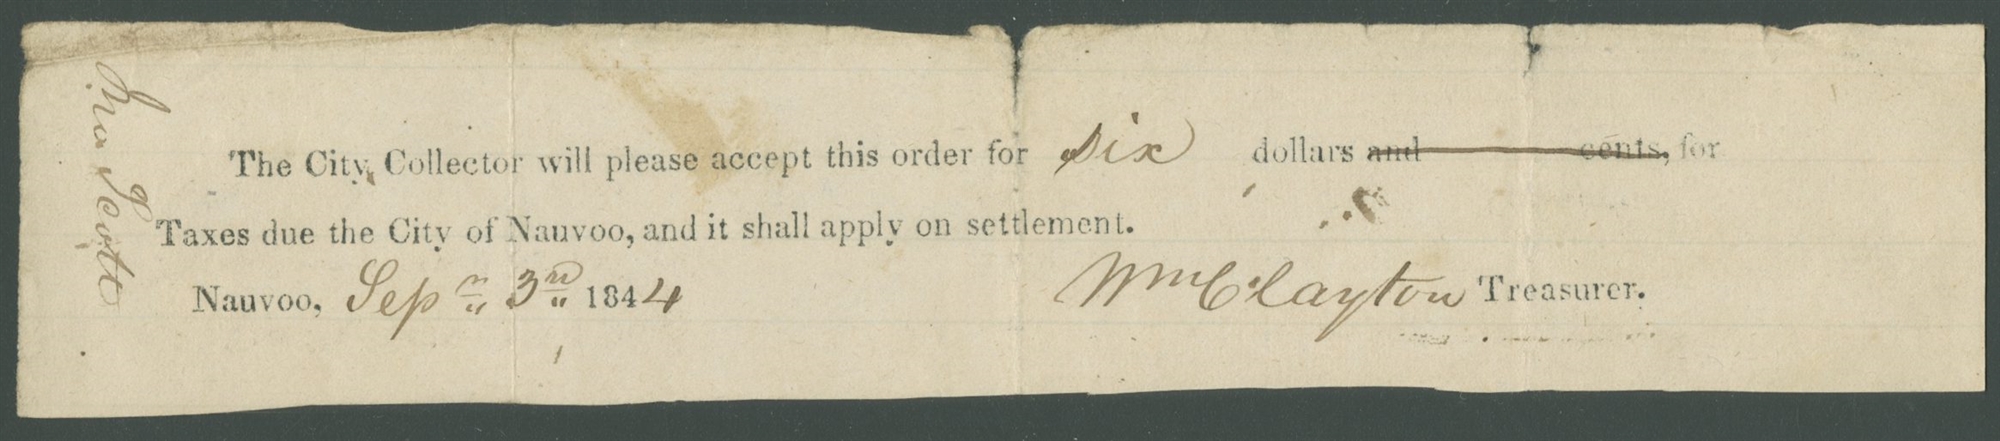 The City Collector will please accept this order for six dollars and cents, for
Taxes due the City of Nauvoo, and it shall apply on settlement.
Nauvoo, Sepr 3rd 1844 Wm Clayton Treasurer.
Scott